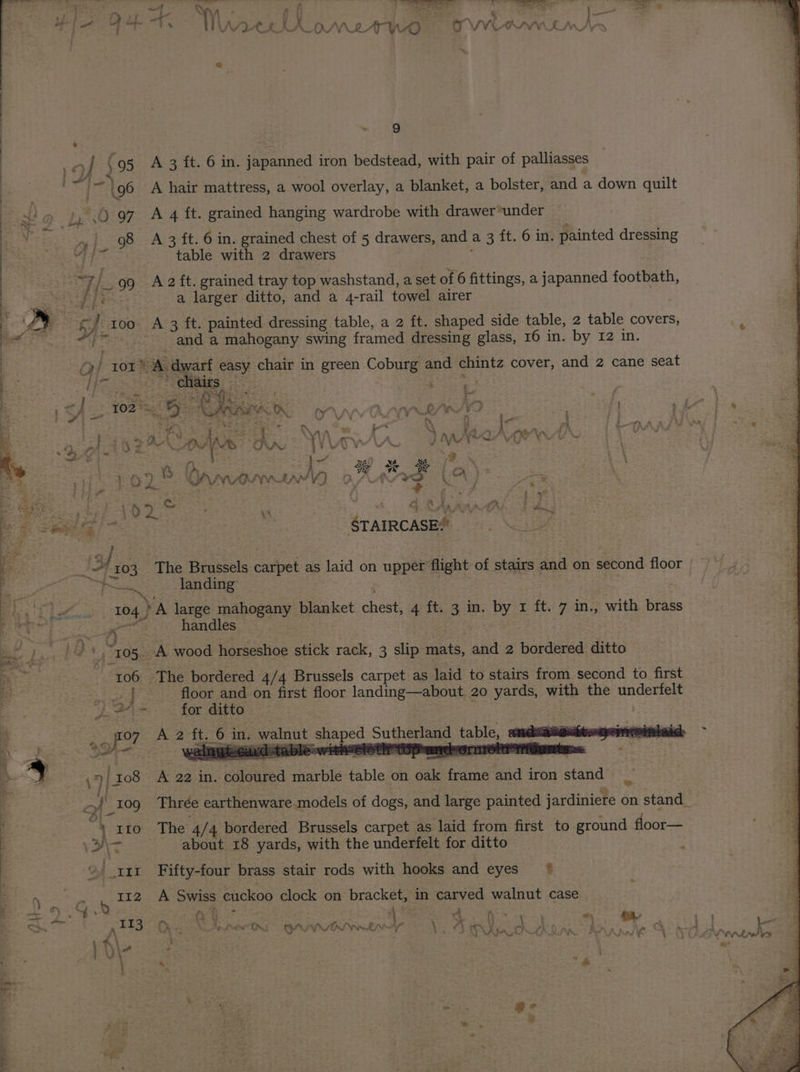 94+ Miscellaneous ornaments
9
95 A 3 ft. 6 in. japanned iron bedstead, with pair of palliasses
96 A hair mattress, a wool overlay, a blanket, a bolster, and a down quilt
97 A 4 ft. grained hanging wardrobe with drawer under
98 A 3 ft. 6 in. grained chest of 5 drawers, and a 3 ft. 6 in. painted dressing
table with 2 drawers
99 A 2 ft. grained tray top washstand, a set of 6 fittings, a japanned footbath,
a larger ditto, and a 4-rail towel airer
100 A 3 ft. painted dressing table, a 2 ft. shaped side table, 2 table covers,
and a mahogany swing framed dressing glass, 16 in. by 12 in.
101 A dwarf easy chair in green Coburg and chintz cover, and 2 cane seat
chairs
102
102 B Ornaments
102 C
STAIRCASE
103 The Brussels carpet as laid on upper flight of stairs and on second floor
landing
104 A large mahogany blanket chest, 4 ft. 3 in. by 1 ft. 7 in., with brass
handles
105 A wood horseshoe stick rack, 3 slip mats, and 2 bordered ditto
106 The bordered 4/4 Brussels carpet as laid to stairs from second to first
floor and on first floor landing—about 20 yards, with the underfelt
for ditto
107 A 2 ft. 6 in. walnut shaped Sutherland table,
108 A 22 in. coloured marble table on oak frame and iron stand
109 Three earthenware models of dogs, and large painted jardiniere on stand
110 The 4/4 bordered Brussels carpet as laid from first to ground floor—
about 18 yards, with the underfelt for ditto
111 Fifty-four brass stair rods with hooks and eyes
112 A Swiss cuckoo clock on bracket, in carved walnut case
113